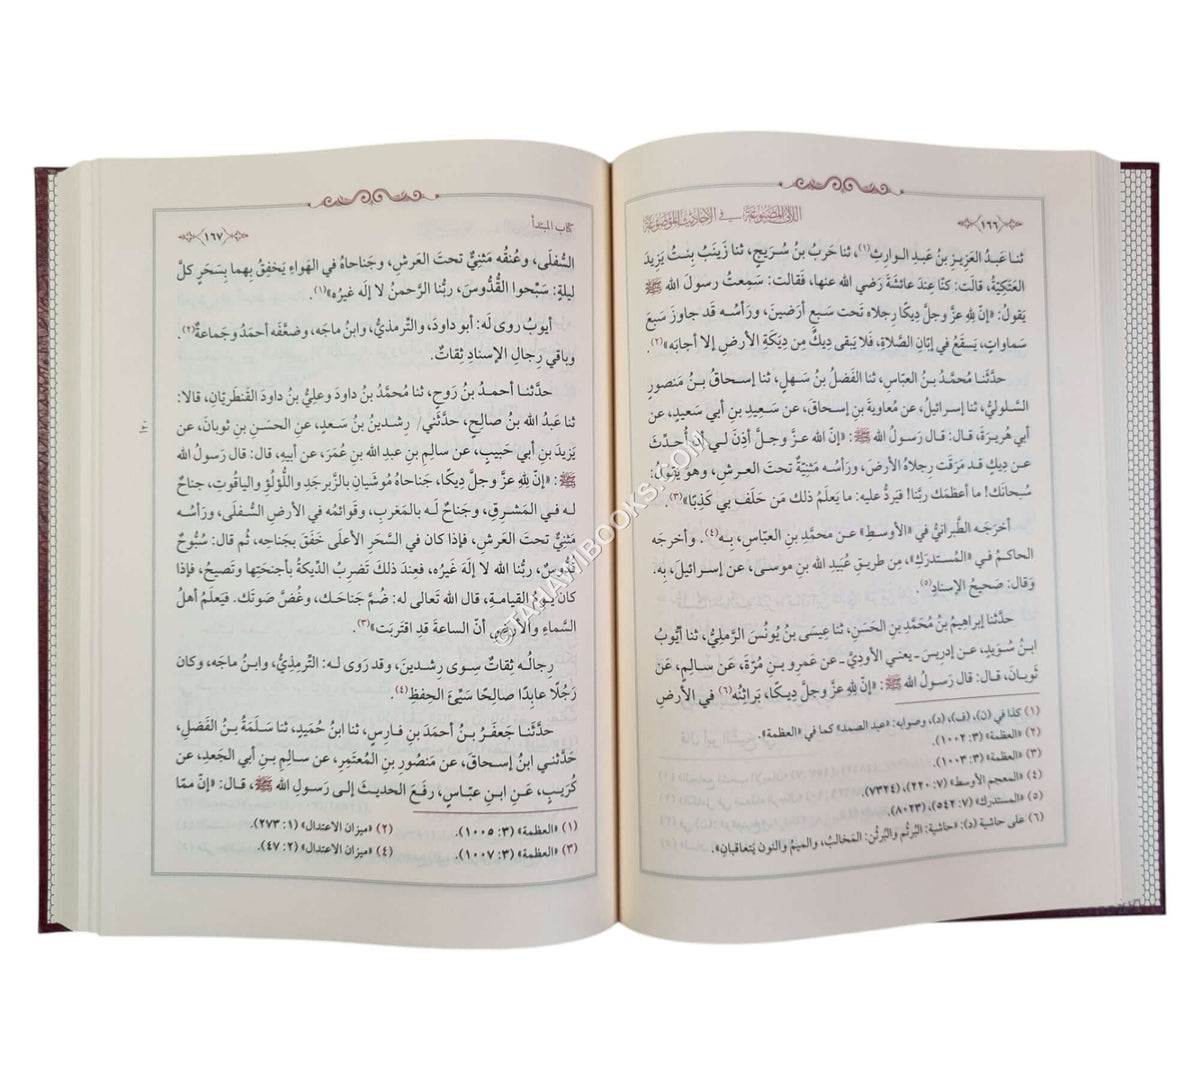 ﴿١٦٦﴾
اللآلئ المصنوعة في الأحاديث الموضوعة
ثنا عَبدُ العَزيزِ بنُ عَبدِ الوارِثِ(١)، ثنا حَربُ بنُ سُرَيجٍ، ثنا زَينَبُ بِنتُ يَزِيدَ
العَتَكِيَّةُ، قالَت: كنّا عِندَ عائشَةَ رَضي الله عنها، فَقالَت: سَمِعتُ رسولَ الله ﷺ
يَقولُ: «إنّ لِلهِ عزَّ وجلَّ دِيكًا رِجلاه تَحت سَبعِ أرَضينَ، ورَأسُه قَد جاوز سَبعَ
سماواتٍ، يَسقَعُ في إبّانِ الصَّلاةِ، فَلا يَبقى دِيكٌ مِن دِيَكَةِ الأرضِ إلا أجابَه»(٢).
حدَّثَنا مُحمَّدُ بنُ العبّاسِ، ثنا الفَضلُ بنُ سَهلٍ، ثنا إسحاقُ بنُ مَنصورٍ
السَّلوليُّ، ثنا إسرائيلُ، عن مُعاوِيةَ بنِ إسحاقَ، عن سَعِيدِ بنِ أبي سَعِيدٍ، عن
أبي هُريرَةَ، قال: قال رَسولُ الله ﷺ: «إنّ الله عزَّ وجلَّ أذِنَ لي أن أُحدِّثَ
عن دِيكٍ قد مَرَقَت رِجلاهُ الأرضَ، ورَأسُه مَثنِيّةٌ تحتَ العرشِ، وهو يَقولُ:
سُبحانَك! ما أعظمَك ربَّنا! فيَرِدُّ عليه: ما يَعلَمُ ذلك مَن حَلَف بي كَذِبًا»(٣).
أخرَجَه الطَّبرانيُّ في «الأوسطِ» عن محمَّدِ بنِ العبّاسِ، بِه(٤). وأخرجَه
الحاكمُ في «المُستدرَكِ»، مِن طريقِ عُبَيدِ الله بنِ موسى، عن إسرائيلَ، بِه.
وَقال: صَحيحُ الإسنادِ(٥).
حدَّثَنا إبراهيمُ بنُ مُحَمَّدِ بنِ الحَسَنِ، ثنا عِيسَى بنُ يُونُسَ الرَّمليُّ، ثنا أيُّوبُ
ابنُ سُوَيدٍ، عن إدريسَ -يعني الأودِيَّ- عن عَمرِو بنِ مُرَّةَ، عَن سَالِمٍ، عَن
ثَوبانَ، قال: قال رَسولُ الله ﷺ: «إنّ لِلهِ عزَّ وجلَّ دِيكًا، بَراثِنُه(٦) في الأرضِ
(١) كذا في (ن)، (ف)، (د)، وصوابه: «عبد الصمد» كما في «العظمة».
(٢) «العظمة» (٣: ١٠٠٢).
(٣) «العظمة» (٣: ١٠٠٣).
(٤) «المعجم الأوسط» (٧: ٢٢٠)، (٧٣٢٤).
(٥) «المستدرك» (٧: ٥٤٢)، (٨٠٢٣).
(٦) على حاشية (د): «حاشية: البُرثُم والبُرثُن: المَخالبُ، والميمُ والنون يَتعاقبانِ».
كتاب المبتدأ
﴿١٦٧﴾
السُّفلَى، وعُنقُه مَثنِيٌّ تحتَ العَرشِ، وجَناحاهُ في الهَواءِ يَخفِقُ بهما بِسَحَرِ كلَّ
ليلةٍ: سَبِّحوا القُدُّوسَ، ربُّنا الرَّحمنُ لا إلَه غيرُه»(١).
أيوبُ روى لَه: أبو داودَ، والتِّرمذيُّ، وابنُ ماجَه، وضَعَّفَه أحمَدُ وجَماعةٌ(٢).
وباقي رِجالِ الإسنادِ ثِقاتٌ.
حدَّثَنا أحمدُ بنُ رَوحٍ، ثنا مُحمَّدُ بنُ داودَ وعليُّ بنُ داودَ القَنطَرِيّانِ، قالا:
ثنا عَبدُ الله بنُ صالِحٍ، حدَّثَني/ رِشدينُ بنُ سَعدٍ، عن الحَسَنِ بنِ ثوبانَ، عن
١٢٠
يَزيدَ بنِ أبي حَبيبٍ، عن سالِمِ بنِ عبدِ الله بنِ عُمَرَ، عن أبيه، قال: قال رَسولُ الله
ﷺ: «إنّ لِلهِ عزَّ وجلَّ دِيكًا، جَناحاهُ مُوشَيانِ بالزَّبرجَدِ واللُّؤلُؤِ والياقوتِ، جناحٌ
له في المَشرِقِ، وجَناحٌ لَه بالمَغربِ، وقَوائمُه في الأرضِ السُّفلَى، ورَأسُه
مَثنِيٌّ تحتَ العَرشِ، فإذا كان في السَّحَرِ الأعلَى خَفَقَ بِجَناحِه، ثُم قال: سُبُّوحٌ
قُدُّوسٌ، ربُّنا الله لا إلَهَ غَيرُه، فعِندَ ذلكَ تَضرِبُ الدِّيَكةُ بأجنحَتِها وتَصيحُ، فإذا
كان يَومُ القيامَةِ، قال الله تَعالَى له: ضُمَّ جَناحَك، وغُضَّ صَوتَك. فيَعلَمُ أهلُ
السَّماءِ والأرضِ أنّ الساعةَ قدِ اقتَرَبَت»(٣).
رِجالُه ثِقاتٌ سِوى رِشدينَ، وقد رَوى له: التِّرمِذيُّ، وابنُ ماجَه، وكان
رَجُلًا عابِدًا صالِحًا سَيِّئَ الحِفظِ(٤).
حدَّثَنا جَعفَرُ بنُ أحمَدَ بنِ فارِسٍ، ثنا ابنُ حُمَيدٍ، ثنا سَلَمةُ بنُ الفَضلِ،
حَدَّثَني ابنُ إسحاقَ، عن مَنصورِ بنِ المُعتَمِرِ، عن سالِمِ بنِ أبي الجَعدِ، عن
كُرَيبٍ، عَنِ ابنِ عبّاسٍ، رفَعَ الحديثَ إلى رَسولِ الله ﷺ، قال: «إنّ ممّا
(١) «العظمة» (٣: ١٠٠٥). (٢) «ميزان الاعتدال» (١: ٢٧٣).
(٣) «العظمة» (٣: ١٠٠٧). (٤) «ميزان الاعتدال» (٢: ٤٧).
©TAHAWIBOOKS.COM